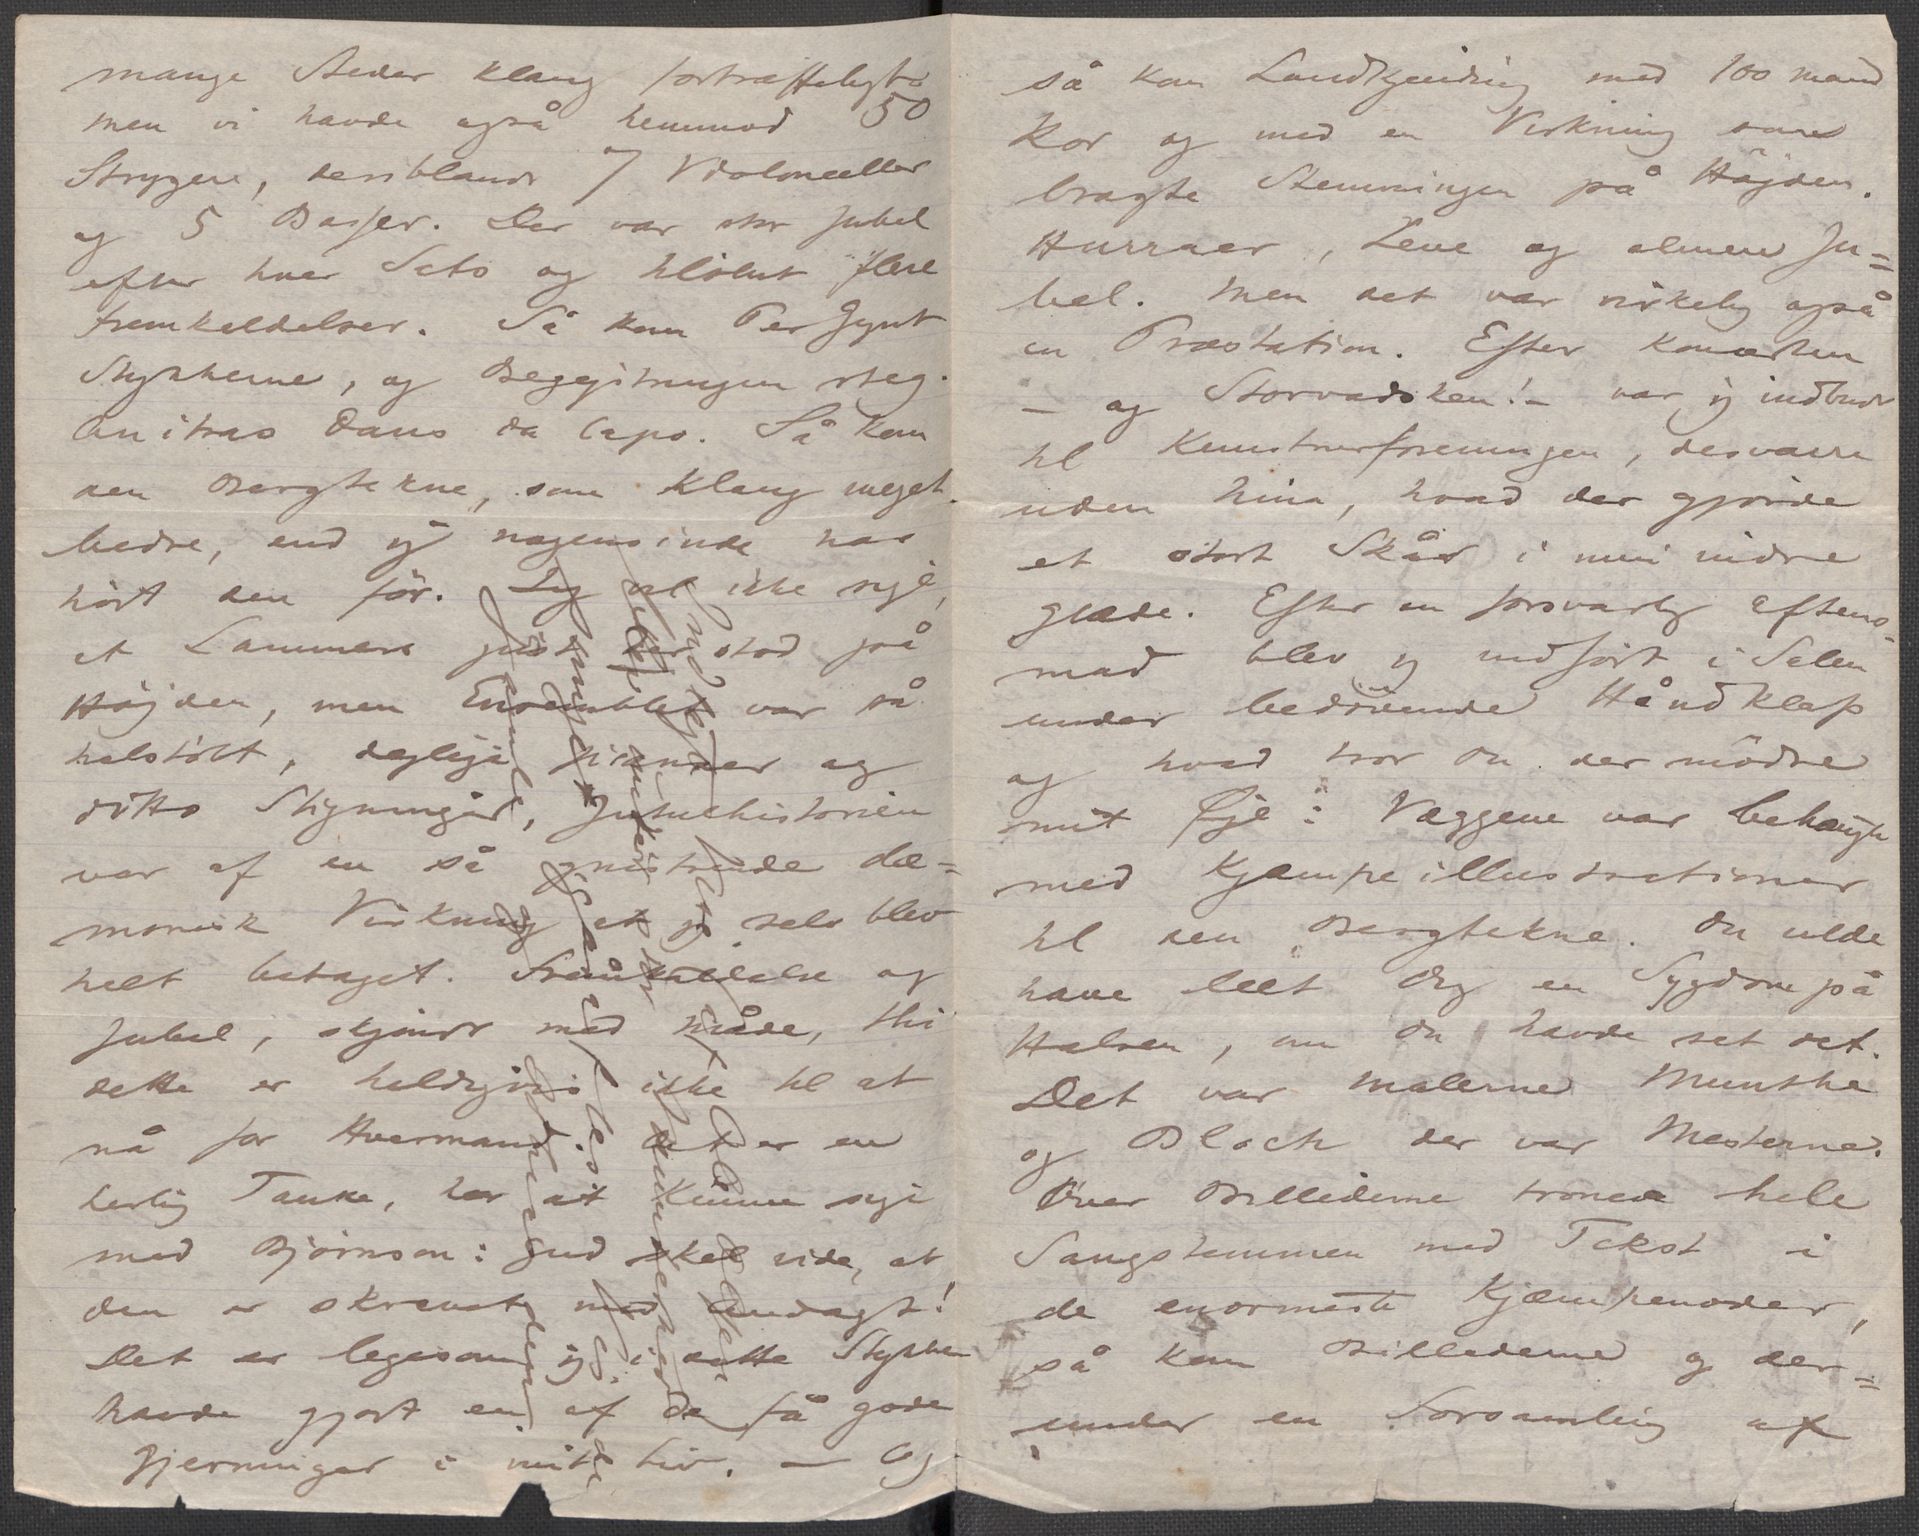 mange Steder klang fortræffeligt.
men vi havde også henimod 50
Strygere, deriblandt 7 Violonceller
og 5 Basser. Der var stor Jubel
efter hver Sats og tilslut flere
fremkaldelser. Så kom Per Gynt
Stykkerne, og Begejstringen steg.
Anitras Dans da Capo. Så kom
den Bergtekne, som klang meget
bedre, end jeg nogensinde har
hørt den før. Jeg vil ikke sige,
at Lammers just der stod på
Højden, men Ensemblet var så
helstøbt, dejlige pianoer og
ditto Stigninger, Jutulhistorien
var af en så gnistrende dæ=
monisk Virkning at jeg selv blev
helt betaget. Fremkaldelse og
Jubel, skjøndt med Måde, thi
dette er heldigvis ikke til at
nå for Hvermand. Det er en
herlig Tanke, her at kunne sige
med Bjørnson: Gud skal vide, at
den er skrevet med Andagt!
Det er ligesom jeg i dette Stykke
havde gjort en af de få gode
Gjerninger i mit Liv. — Og
så kom Landkjending med 100 mand
Kor og med en Virkning som
bragte Stemningen på Højden.
Hurraer, Leve og almen Ju=
bel. Men det var virkelig også
en Præstation. Efter Koncerten
– og Storvadsken! – var jeg indbudt
til Kunstnerforeningen, desværre
uden Nina, hvad der gjorde
et stort Skår i min indre
glæde. Efter en forsvarlig Aftens=
mad blev jeg indført i Salen
under bedøvende Håndklap
og hvad tror du der mødte
mit Øje: Væggene var behængte
med Kjæmpeillustrationer
til den Bergtekne. Du vilde
have leet dig en Sygdom på
Halsen, om du havde set det.
Det var malerne Munthe
og Bloch der var Mesterne.
Over Billederne tronede hele
Sangstemmen med Tekst i
de enormeste Kjæmpenoder,
så kom Billederne og der=
under en Forsamling af